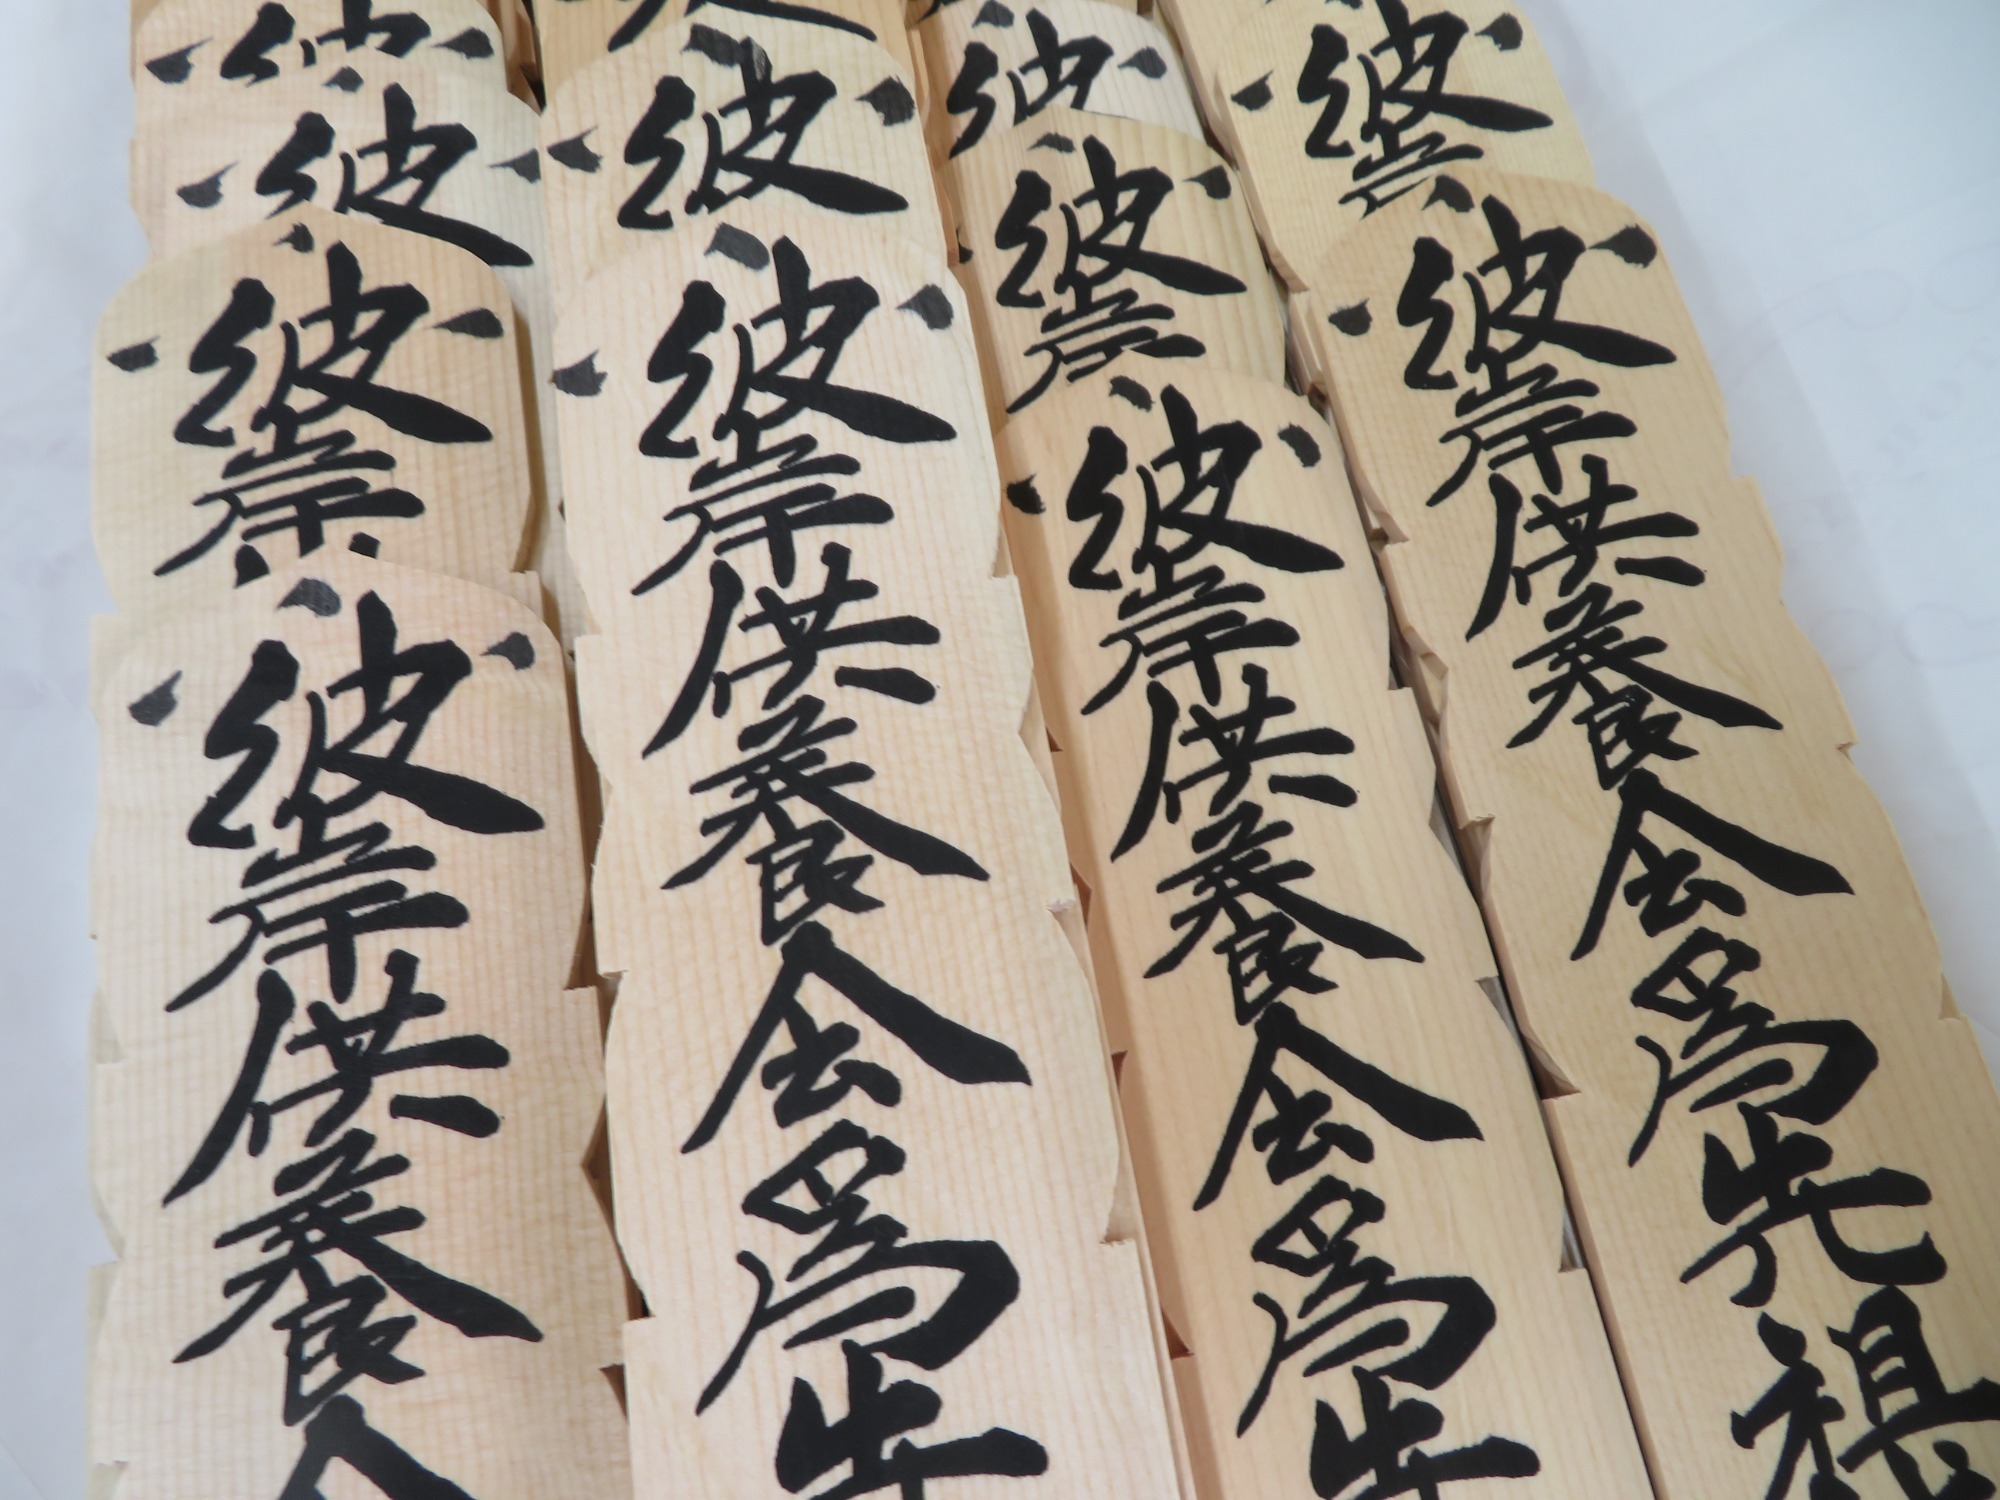 彼岸供養会為先祖
彼岸
彼岸供養会為先
彼岸
彼
彼岸供養会為先
彼
彼岸供養会
彼岸
彼
彼